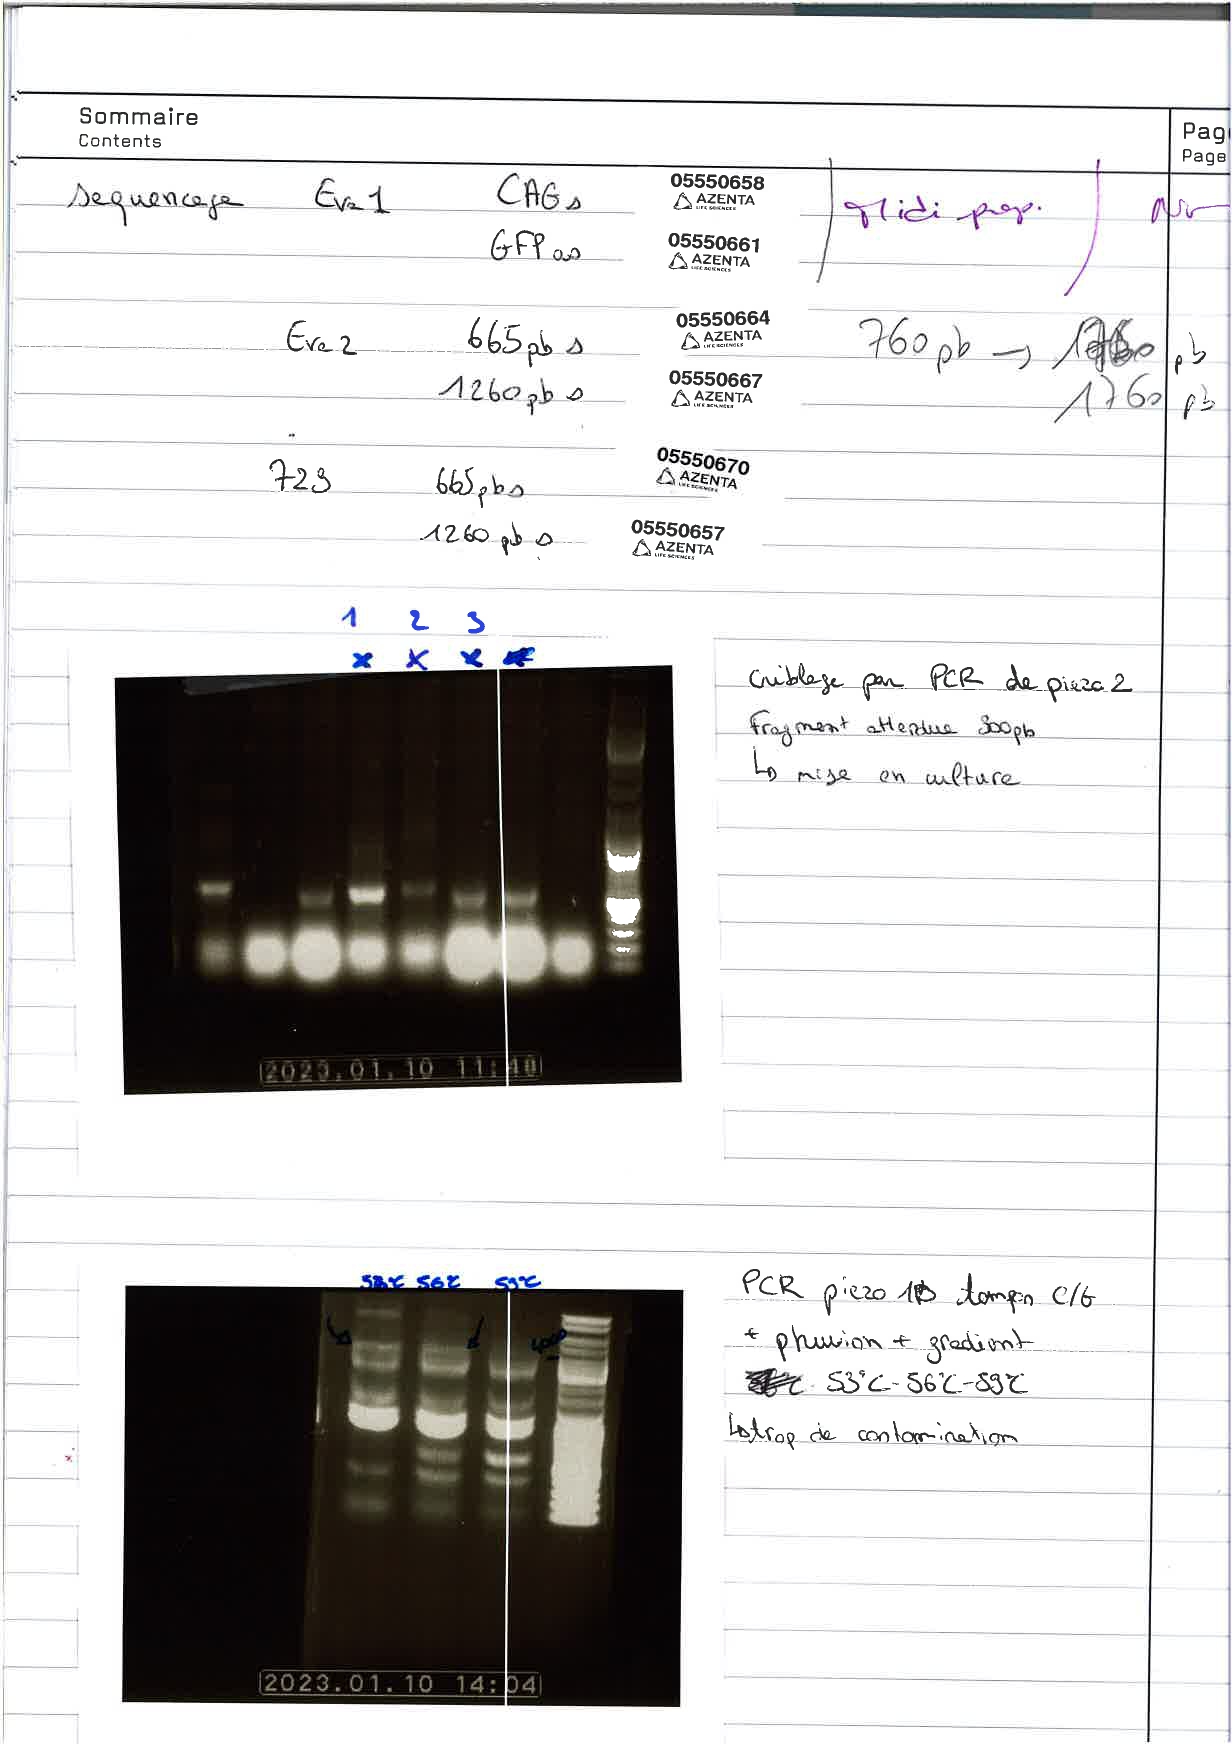 Sommaire
Contents
Page
Page
sequencage Eva 1 CAG s 05550658 AZENTA LIFE SCIENCES Midi prep.
GFP as 05550661 AZENTA LIFE SCIENCES
Eva 2 665 pb s 05550664 AZENTA LIFE SCIENCES 760 pb → pb
1260 pb s 05550667 AZENTA LIFE SCIENCES 1760 pb
723 665 pb s 05550670 AZENTA LIFE SCIENCES
1260 pb s 05550657 AZENTA LIFE SCIENCES
1 2 3
x x x
Criblage par PCR de piezo 2
Fragment attendue 300pb
↳ mise en culture
2023.01.10 11:48
53°C 56°C 59°C
PCR piezo 1B tampon C/G
+ phusion + gradient
53°C-56°C-59°C
↳ trop de contamination
2023.01.10 14:04